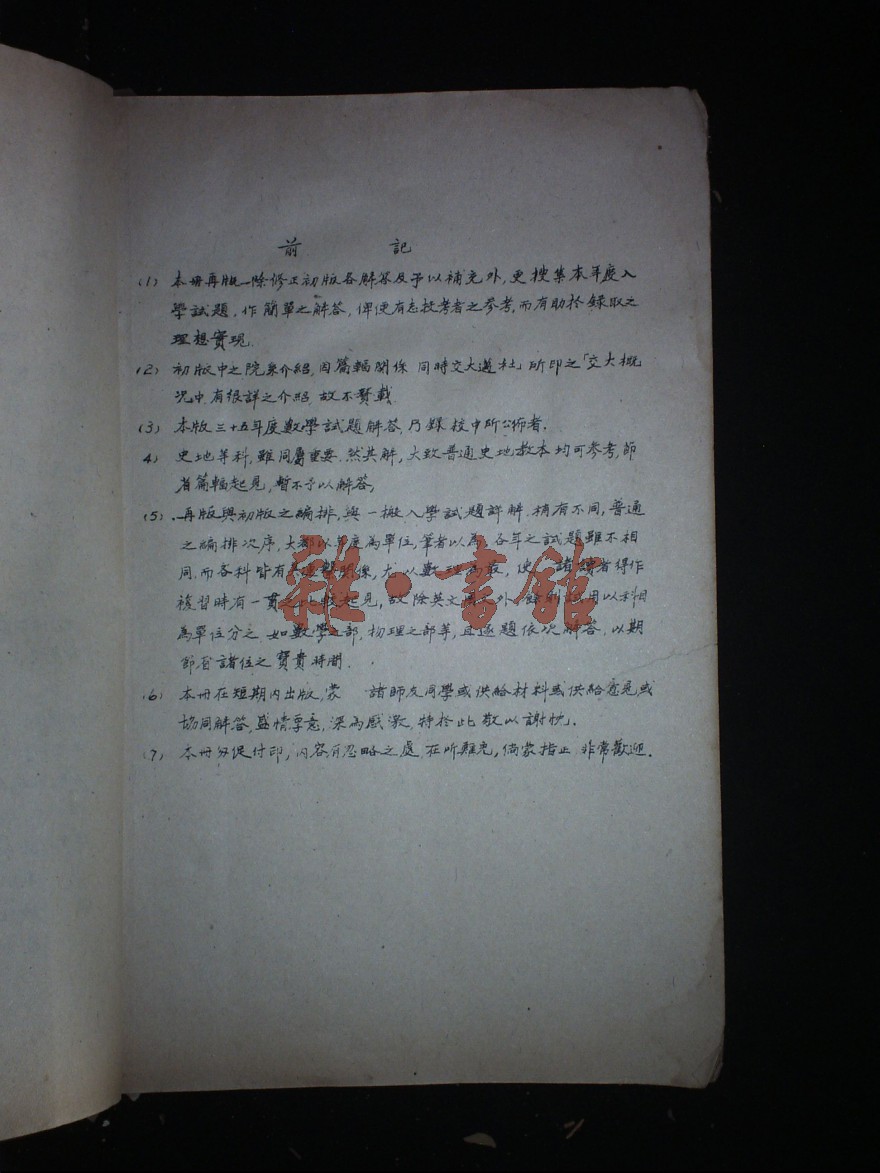 前 記
(1) 本冊再版,除修正初版各解答及予以補充外,更搜集本年度入
學試題,作簡單之解答,俾便有志投考者之參考,而有助於錄取之
理想實現
(2) 初版中之院系介紹,因篇幅關係 同時交大 社 所印之「交大概
況中,有很詳之介紹 故不贅載
(3) 本版三十五年度數學試題解答,乃錄校中所公佈者.
4) 史地等科,雖同屬重要,然其解,大致普通史地教本均可參考,節
省篇幅起見,暫不予以解答,
(5) 再版與初版之編排,與一般入學試題詳解,稍有不同,普通
之編排次序,大都以年度為單位,筆者以為,各年之試題雖不相
同,而各科皆有 關係,尤以數理為最,使 諸讀者得作
複習時有一貫之比較起見,故除英文 外 用以科目
為單位分之,如數學之部,物理之部等,且逐題依次解答,以期
節省諸位之寶貴時間.
(6) 本冊在短期內出版,蒙 諸師友同學或供給材料或供給意見或
協同解答,盛情厚意,深為感激,特於此敬以謝忱.
(7) 本冊匆促付印,內容有忽略之處,在所難免,倘蒙指正 非常歡迎.
雜·書館